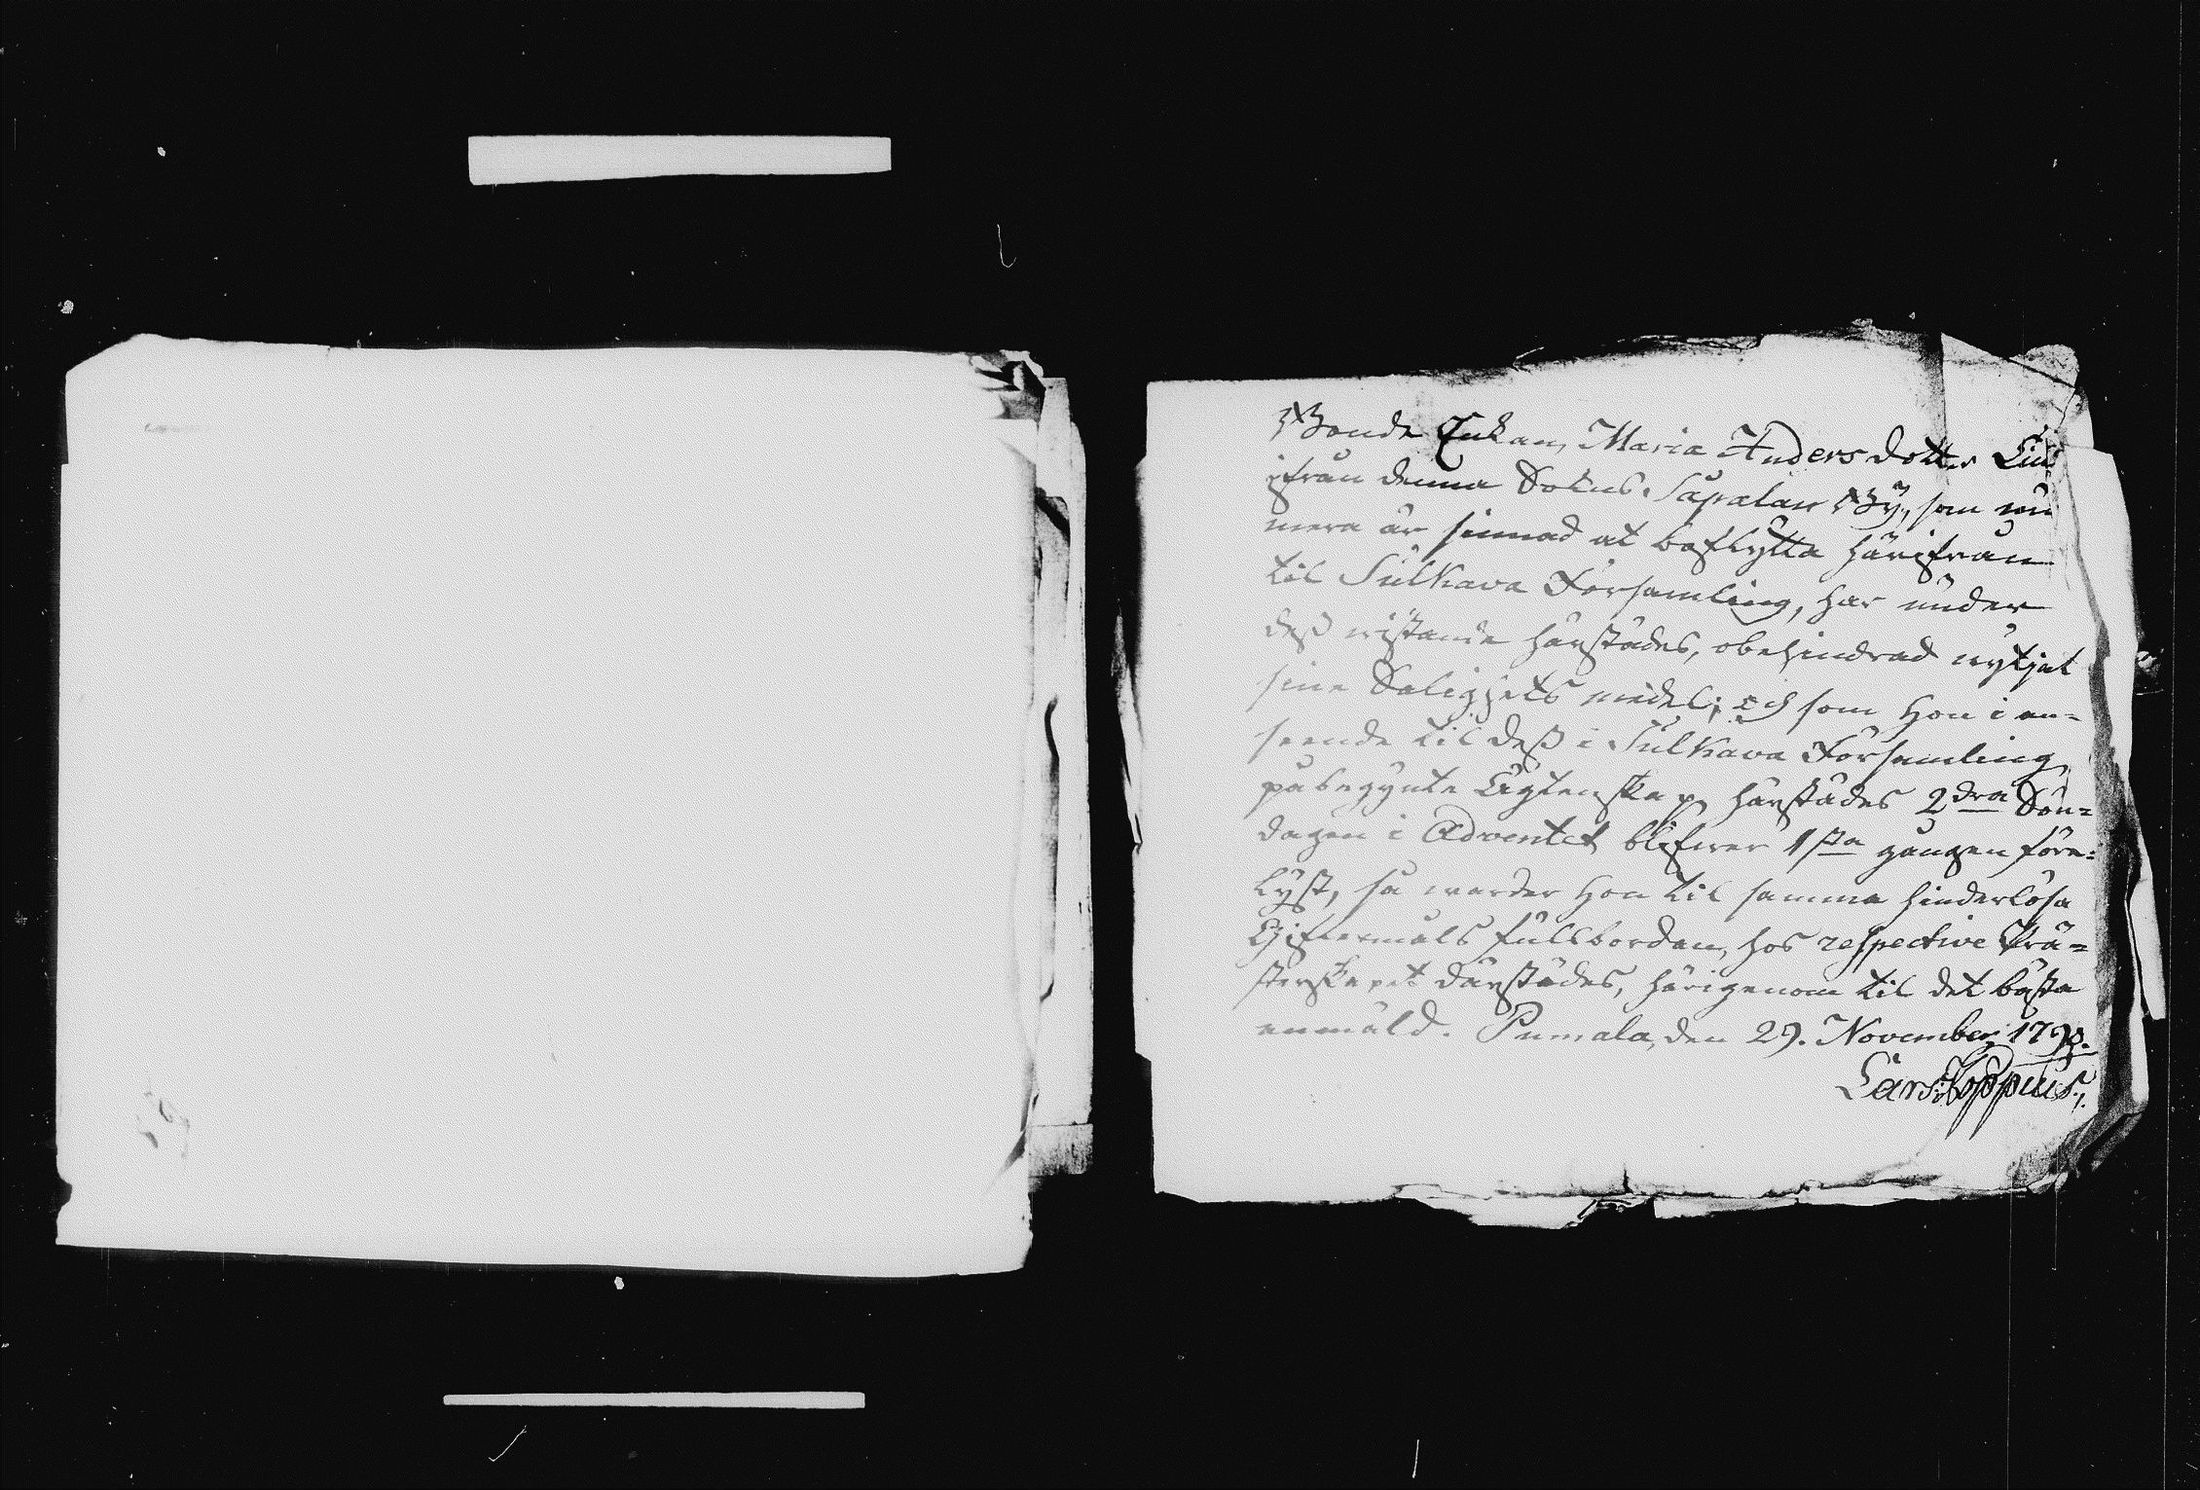 Bonde Enkan, Maria Andersdotter
ifrån denna Sokns Sapalan By, som nu
mera är sinnad at bortflytta härifrån
til Sulkava Församling, har under
deß wistande härstädes, obehindrad nytjat
sine Salighets medel; och som Hon i an=
seende til deß i Sulkava Församling
påbegynte Ägtenskap härstädes 2dra Sön=
dagen i Adventet blifwer 1sta gången före=
lyst, så warder Hon til samma hinderlösa
Giftermåls fullbordan, hos respective Prä=
sterskapet därstädes, härigenom til det bästa
anmäld. Pumala, den 29. November
Lars Poppius.